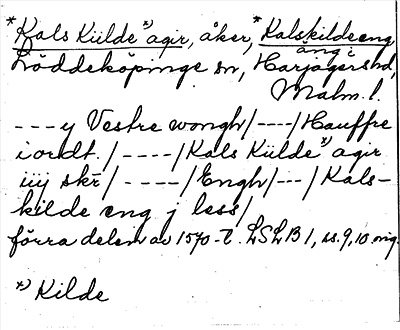 *Kals Külde*) agir, åker, *Kalskilde eng
äng i
Löddeköpinge sn, Harjagers hd,
Malm. l.
---y Vestre wongh/----/Hauffre
i ordt. /----/Kals Külde*) agir
iiij skr/-----/Engh/---/Kals-
kilde eng j less/
förra delen av 1570-t. LSLB 1, ss. 9, 10 orig.
*) Kilde